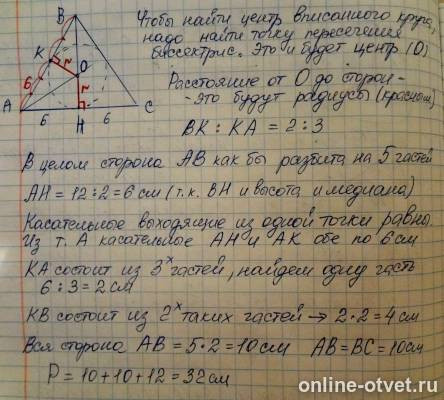 Чтобы найти центр вписанного круга,
надо найти точку пересечения
биссектрис. Это и будет центр (O)
Расстояние от O до сторон -
- это будут радиусы (красным)
BK : KA = 2 : 3
B
K
r
O
6
r
A
6
H
6
C
В целом сторона AB как бы разбита на 5 частей
AH = 12 : 2 = 6 см (т.к. BH и высота и медиана)
Касательные выходящие из одной точки равны.
Из т. A касательные AH и AK обе по 6 см
KA состоит из 3ˣ частей, найдем одну часть
6 : 3 = 2 см
KB состоит из 2ˣ таких частей → 2·2 = 4 см
Вся сторона AB = 5·2 = 10 см AB = BC = 10 см
P = 10 + 10 + 12 = 32 см
online-otvet.ru